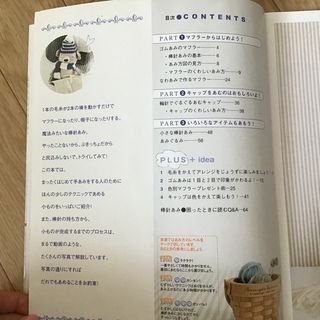 目次 ●CONTENTS
PART 1 マフラーからはじめよう!
ゴムあみのマフラー 4
・棒針あみの基本 6
・あみ方図の見方 8
・マフラーのくわしいあみ方 9
なわあみで作るマフラー 24
PART 2 キャップをあむのはおもしろいよ!
輪針でぐるぐるあむキャップ 36
・キャップのくわしいあみ方 36
PART 3 いろいろなアイテムもあもう!
小さな棒針あみ 48
あみぐるみ 58
PLUS + idea
1 毛糸をかえてアレンジをじょうずに楽しみましょう
2 ゴムあみは1目と2目で印象がかわるよ!
3 色別マフラープレゼント術 25
4 キャップは色をかえて楽しもう! 41
棒針あみ 困ったときに読むQ&A 64
1本の毛糸が2本の棒を動かすだけで
マフラーになったり、帽子になったりする、
魔法みたいな棒針あみ。
やったことないから、ぶきっちょだから
と尻込みしないで、トライしてみて!
この本では、
まったくはじめて手あみをする人のために
ほんの少しのテクニックであめる
小ものをいっぱいご紹介!
また、棒針の持ち方から、
小ものが完成するまでのプロセスは、
まるで動画のような、
たくさんの写真で解説しています。
写真の通りにすれば
だれでもあめることをお約束!